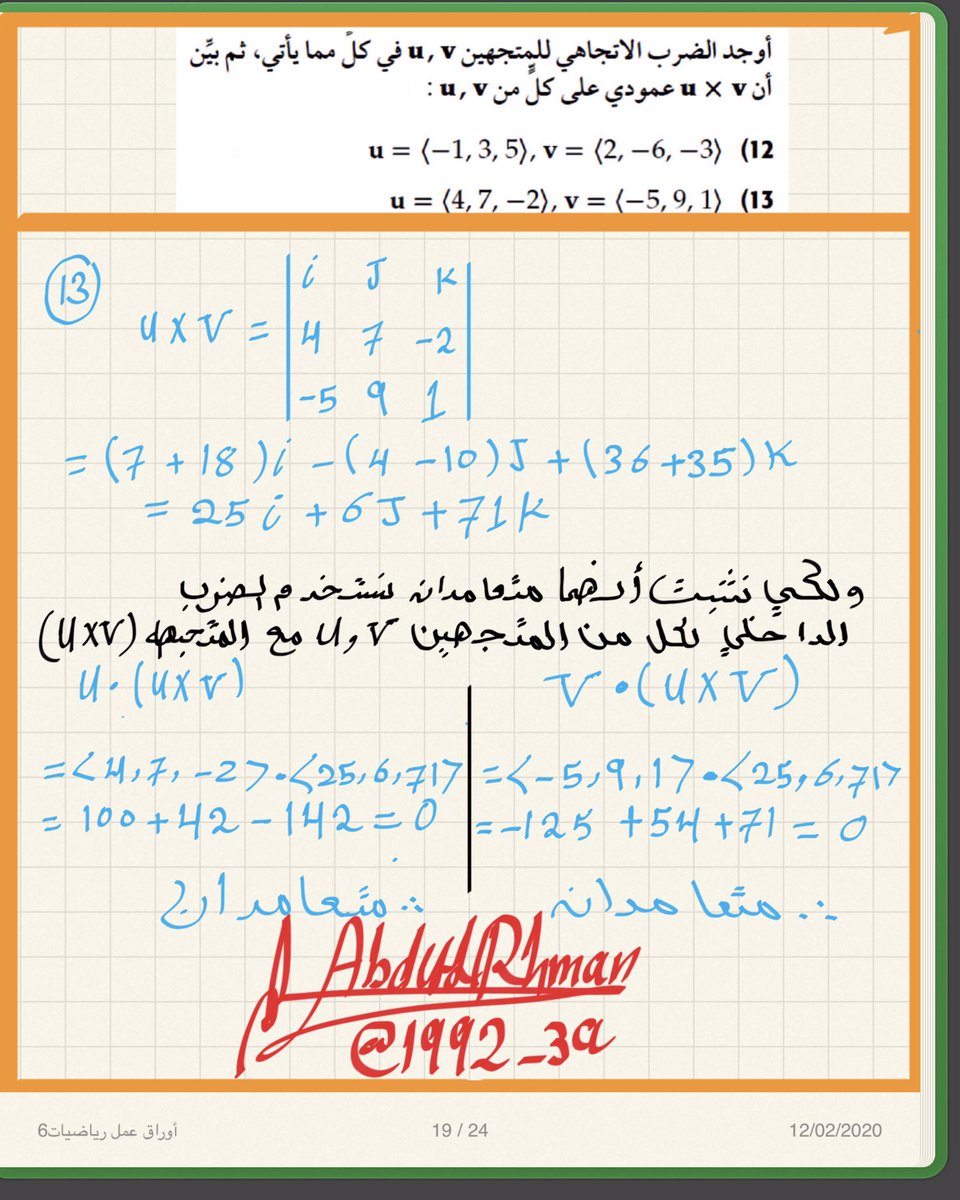 أوجد الضرب الاتجاهي للمتجهين u, v في كلٍّ مما يأتي، ثم بيِّن
أن u × v عمودي على كلٍّ من u, v :
12) u = ⟨−1, 3, 5⟩, v = ⟨2, −6, −3⟩
13) u = ⟨4, 7, −2⟩, v = ⟨−5, 9, 1⟩
13
i J k
u x v = | 4 7 -2 |
-5 9 1
= (7 + 18)i - (4 - 10)J + (36 + 35)K
= 25i + 6J + 71K
ولكي نثبت أنهما متعامدان نستخدم الضرب
الداخلي لكل من المتجهين u, v مع المتجه (u x v)
u · (u x v)
= <4, 7, -2> · <25, 6, 71>
= 100 + 42 - 142 = 0
∴ متعامدان
v · (u x v)
= <-5, 9, 1> · <25, 6, 71>
= -125 + 54 + 71 = 0
∴ متعامدان
AbdulRhman
@1992_39
أوراق عمل رياضيات6
19 / 24
12/02/2020